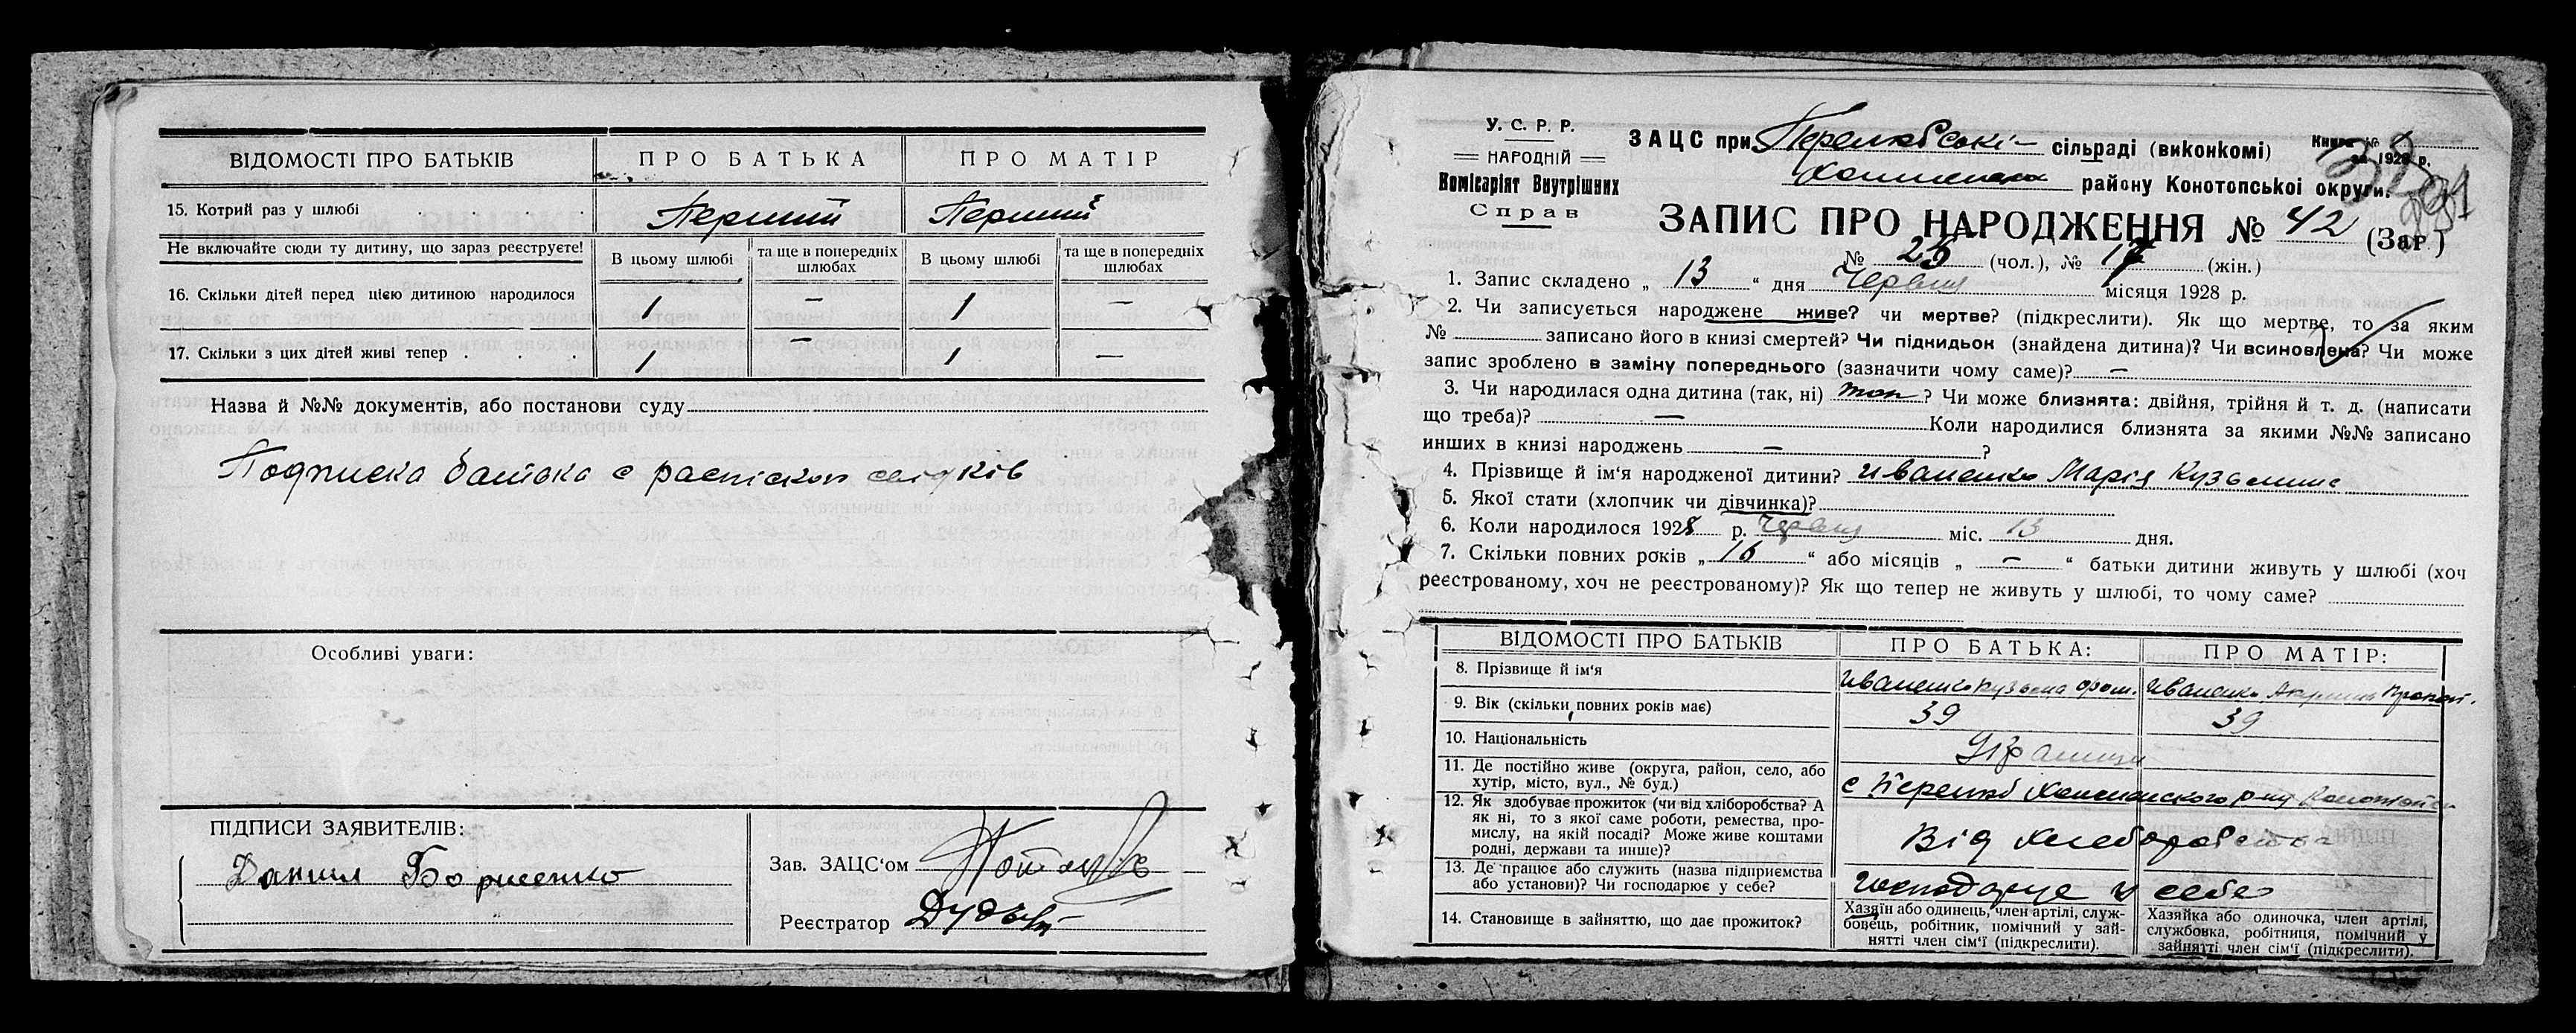 ВІДОМОСТІ ПРО БАТЬКІВ
ПРО БАТЬКА
ПРО МАТІР
15. Котрий раз у шлюбі . . . .
Перший
Перший
Не включайте сюди ту дитину, що зараз реєструєте!
В цьому шлюбі
та ще в попередніх шлюбах
В цьому шлюбі
та ще в попередніх шлюбах
16. Скільки дітей перед цією дитиною народилося
1 — 1 —
17. Скільки з цих дітей живі тепер . . .
1 — 1 —
Назва й №№ документів, або постанови суду
Подписка батька с
Особливі уваги:
ПІДПИСИ ЗАЯВИТЕЛІВ:
Данил Борисенко
Зав. ЗАЦС‘ом
Реєстратор
У. С. Р. Р.
НАРОДНІЙ
Комісаріят Внутрішних
Справ
ЗАЦС при сільраді (виконкомі)
району Конотопської округи.
Книга №
за 1928 р.
ЗАПИС ПРО НАРОДЖЕННЯ № 42 (Заг )
№ 25 (чол.), № 17 (жін.)
1. Запис складено „ 13 “ дня Червня місяця 1928 р.
2. Чи записується народжене живе? чи мертве? (підкреслити). Як що мертве, то за яким
№ записано його в книзі смертей? Чи підкидьок (знайдена дитина)? Чи всиновлена? Чи може
запис зроблено в заміну попереднього (зазначити чому саме)? —
3. Чи народилася одна дитина (так, ні) ? Чи може близнята: двійня, трійня й т. д. (написати
що треба)? — Коли народилися близнята за якими №№ записано
инших в книзі народжень — ?
4. Прізвище й ім‘я народженої дитини? Иваненко Марія
5. Якої стати (хлопчик чи дівчинка)?
6. Коли народилося 1928 р. Червня міс. 13 дня.
7. Скільки повних років „ 16 “ або місяців „ — “ батьки дитини живуть у шлюбі (хоч
реєстрованому, хоч не реєстрованому)? Як що тепер не живуть у шлюбі, то чому саме?
ВІДОМОСТІ ПРО БАТЬКІВ
ПРО БАТЬКА:
ПРО МАТІР:
8. Прізвище й ім‘я
Иваненко Кузьма
Иваненко
9. Вік (скільки повних років має)
39
39
10. Національність
11. Де постійно живе (округа, район, село, або
хутір, місто, вул., № буд.)
12. Як здобуває прожиток (чи від хліборобства? А
як ні, то з якої саме роботи, ремества, про-
мислу, на якій посаді? Може живе коштами
родні, держави та инше)?
Від
13. Де працює або служить (назва підприємства
або установи)? Чи господарює у себе?
господарує у себе
14. Становище в зайняттю, що дає прожиток?
Хазяїн або одинець, член артілі, служ-
бовець, робітник, помічний у зай-
нятті член сім‘ї (підкреслити).
Хазяйка або одиночка, член артілі,
службовка, робітниця, помічний у
зайнятті член сім‘ї (підкреслити).